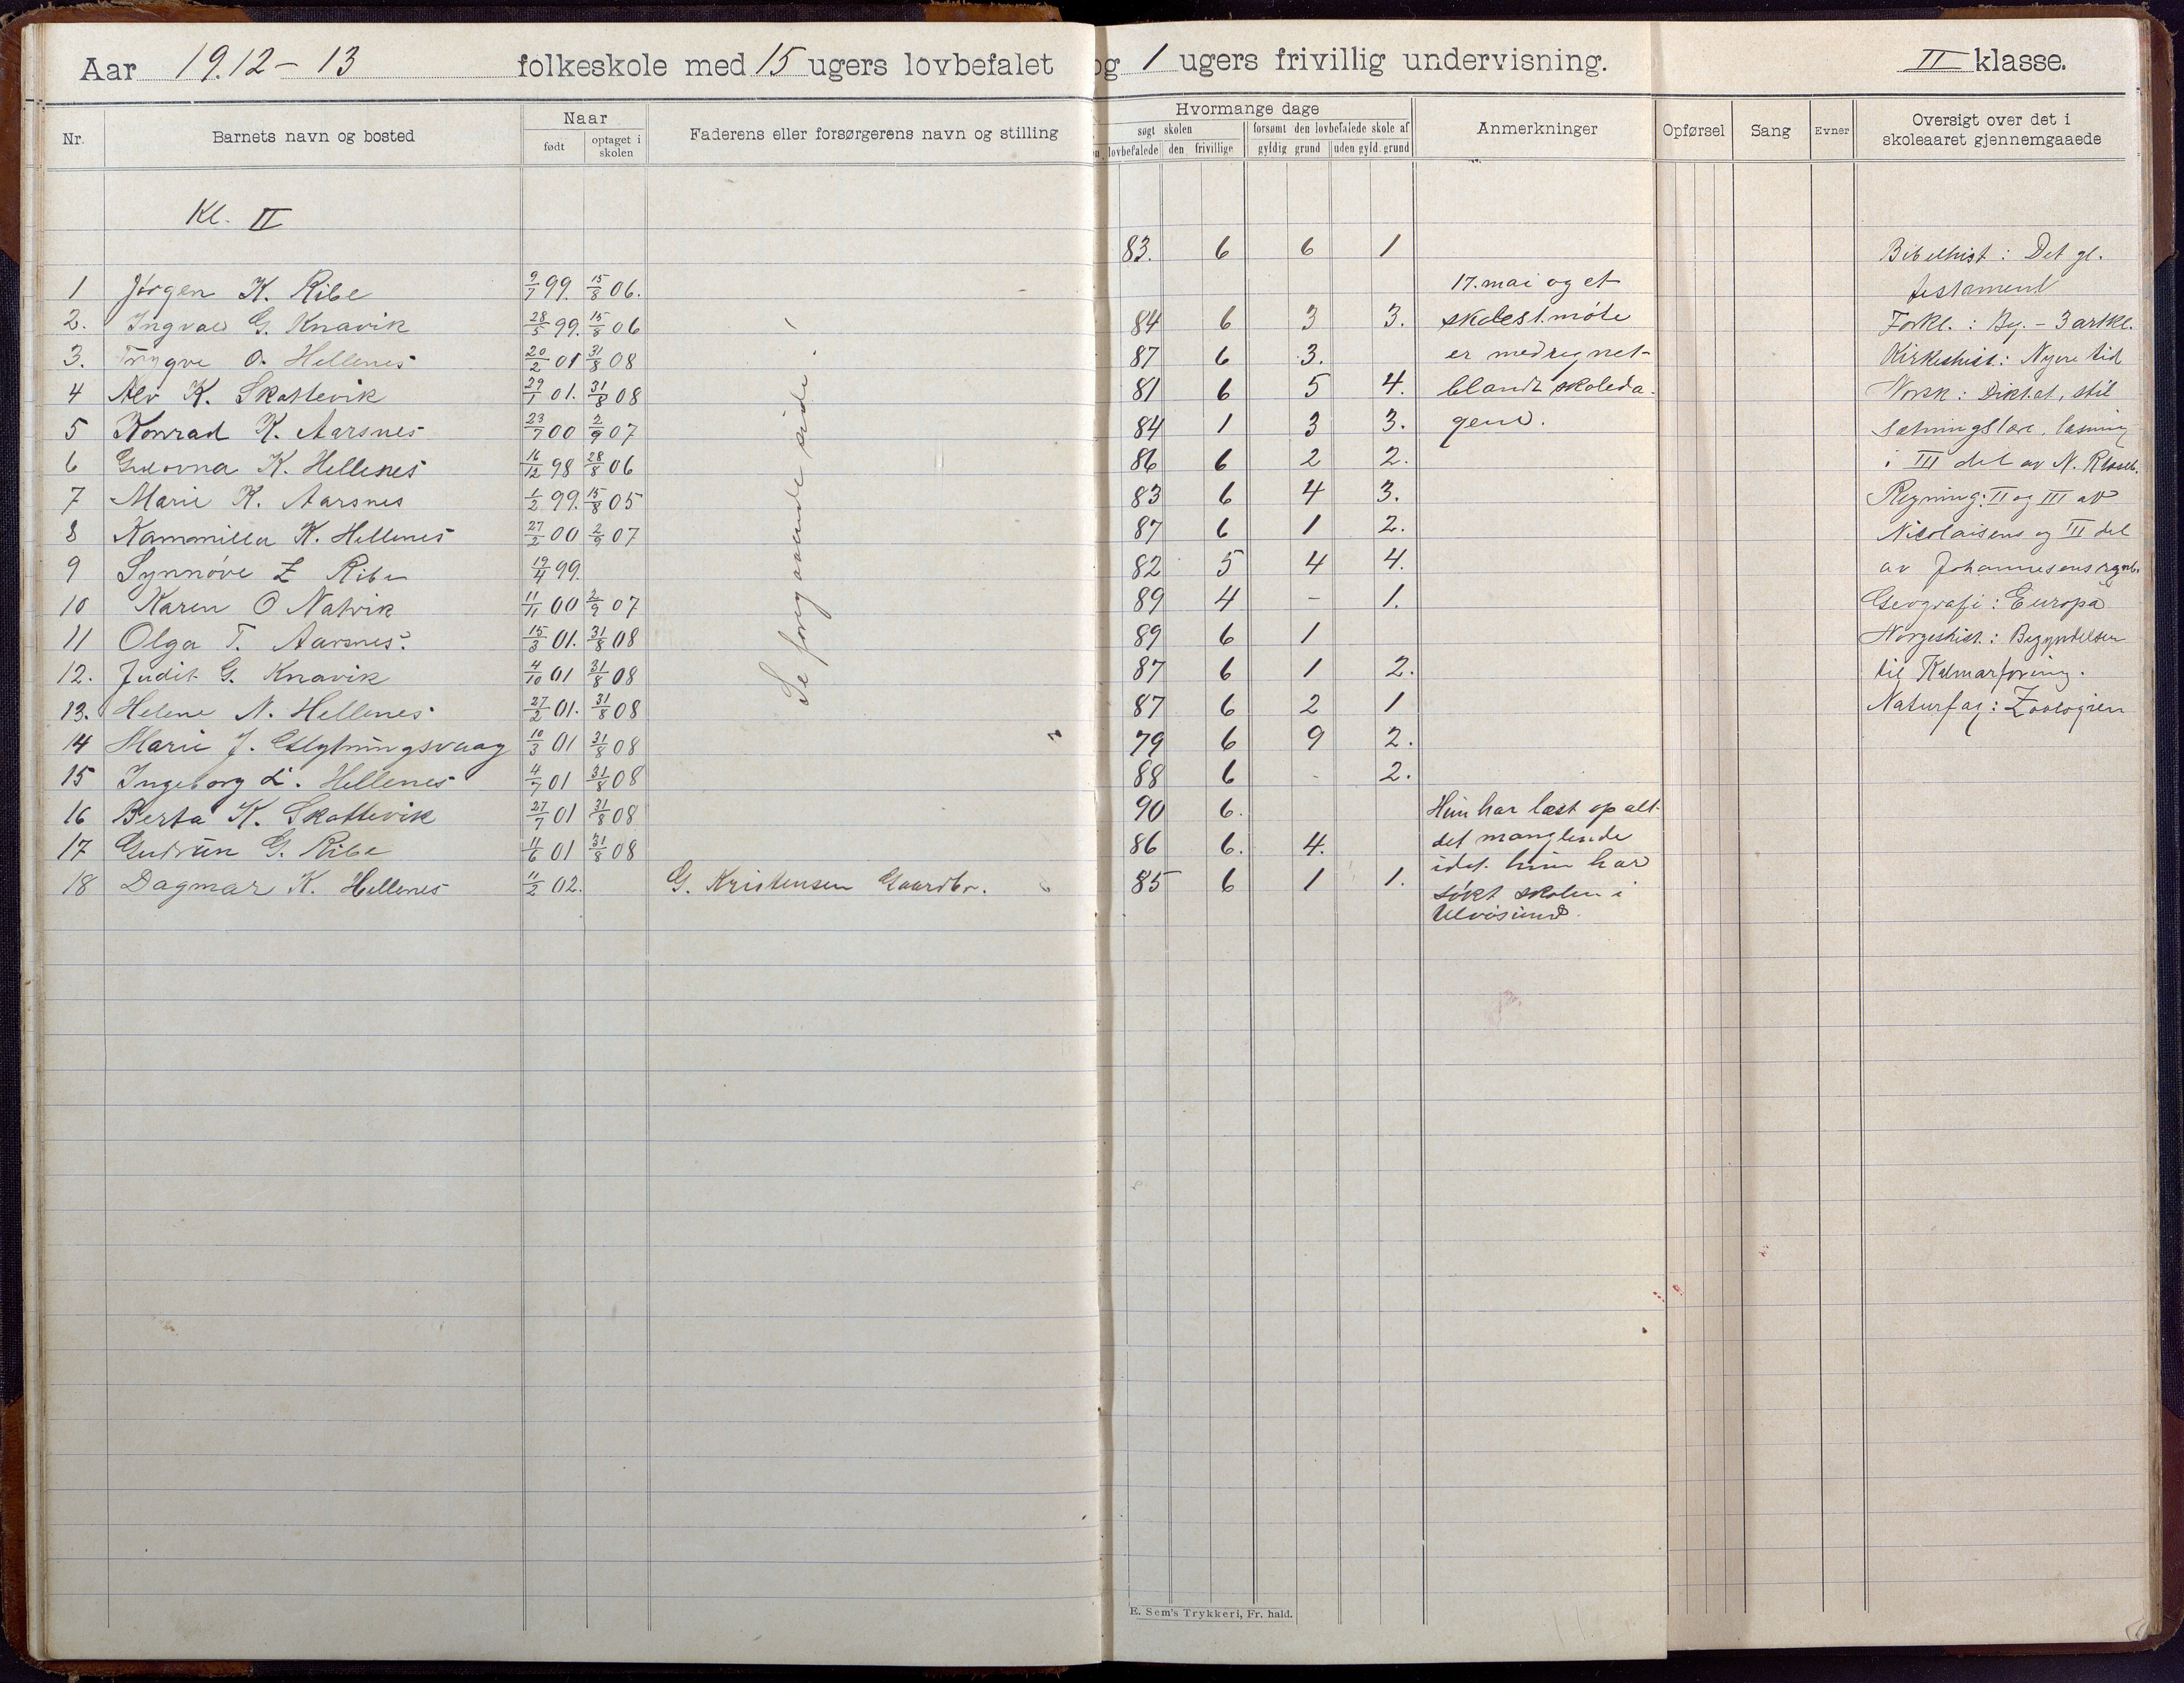 Aar 1912-13 folkeskole med 15 ugers lovbefalet og 1 ugers frivillig undervisning. II klasse.
Nr. Barnets navn og bosted Naar født optaget i skolen Faderens eller forsørgerens navn og stilling
Hvormange dage
søgt skolen forsømt den lovbefalede skole af
lovbefalede den frivillige gyldig grund uden gyld. grund
Anmerkninger Opførsel Sang Evner Oversigt over det i skoleaaret gjennemgaaede
Kl. II
83. 6 6 1
1 Jørgen K. Ribe 9/7 99. 15/8 06.
2. Ingvald G. Knavik 28/5 99. 15/8 06 84 6 3 3.
3. Trygve O. Hellenes 20/2 01 31/8 08 87 6 3.
4 Alv K. Skottevik 29/1 01. 31/8 08 81 6 5 4.
5 Konrad K. Aarsnes 23/7 00 2/9 07 84 1 3 3.
6 Gudorna K. Hellenes 16/12 98 28/8 06 86 6 2 2.
7 Marie K. Aarsnes 1/2 99. 15/8 05 83 6 4 3.
8 Kammilla K. Hellenes 27/2 00 2/9 07 87 6 1 2.
9 Synnøve Z Ribe 19/4 99. 82 5 4 4.
10 Karen O Natvik 11/11 00 2/9 07 89 4 - 1.
11 Olga T. Aarsnes. 15/3 01. 31/8 08 89 6 1
12. Judit G. Knavik 4/10 01 31/8 08 87 6 1 2.
13. Helene N. Hellenes 27/2 01. 31/8 08 87 6 2 1
14 Marie J. 10/3 01 31/8 08 79 6 9 2.
15 Ingeborg L. Hellenes 4/7 01 31/8 08 88 6 - 2.
16 Berta K. Skottevik 27/7 01 31/8 08 90 6.
17 Gudrun G. Ribe 11/6 01 31/8 08 86 6. 4.
18 Dagmar K. Hellenes 11/2 02. G. Kristensen Gaardbr. 85 6 1 1.
Se foregaaende side.
17. mai og et
skolest.møte
er medregnet
blandt skoleda-
gene.
Hun har læst op alt
det manglende
idet hun har
søkt skolen i
Ulvøsund.
Bibelhist: Det gl.
testament
Forkl.: Beg. - 3 artkl.
Kirkehist.: Nyere tid
Norsk: Diktat, stil
sætningslære, læsning
i III del av N. R
Regning: II og III av
Nicolaisens og III del
av Johannesens regnb.
Geografi: Europa
Norgeshist.: Begyndelsen
til Kalmarforening.
Naturfag: Zoologien
E. Sem's Trykkeri, Fr. hald.